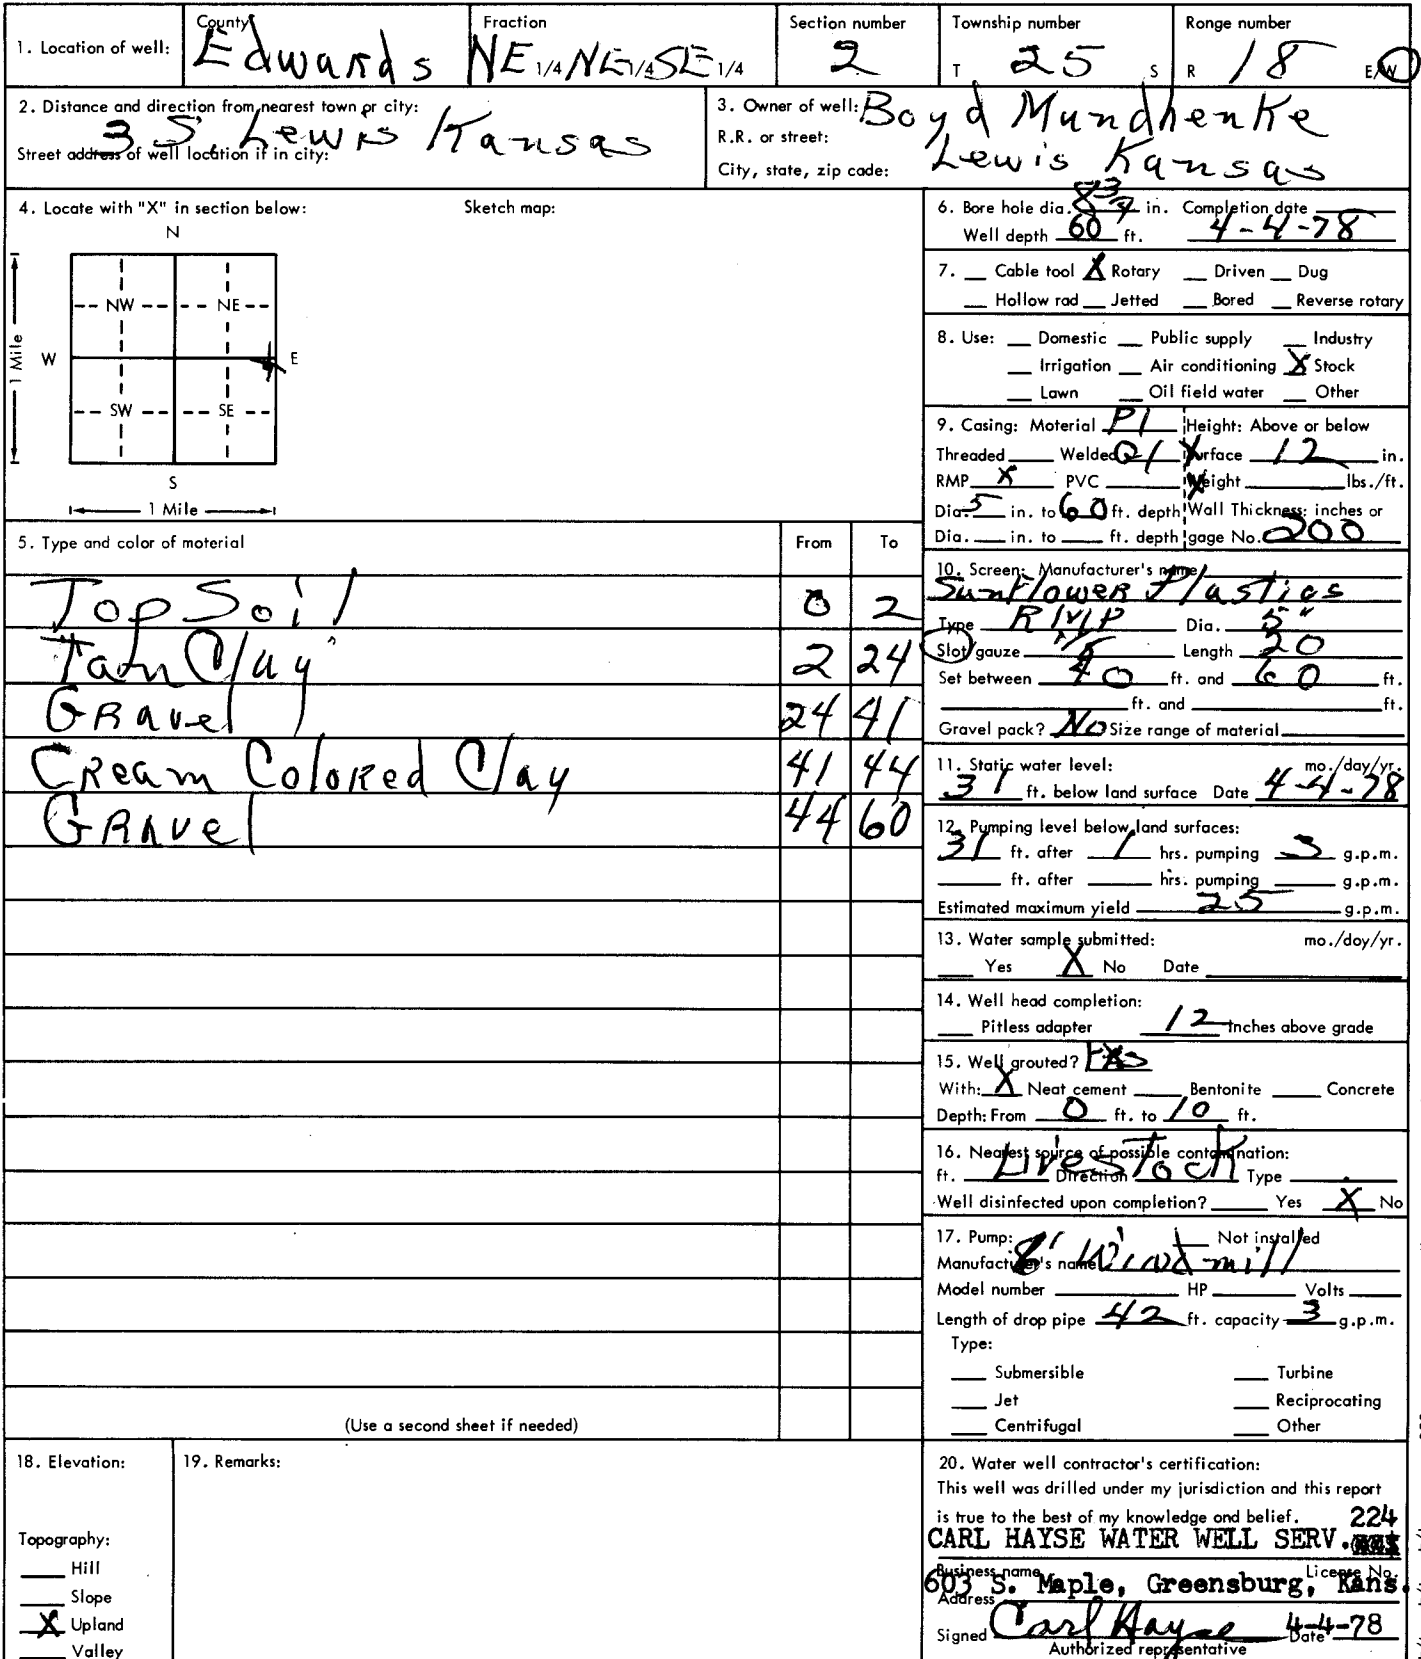 1. Location of well: County Edwards Fraction NE 1/4 NE 1/4 SE 1/4 Section number 2 Township number T 25 S Range number R 18 E/W
2. Distance and direction from nearest town or city: 3 S. Lewis Kansas
Street address of well location if in city:
3. Owner of well: Boyd Mundhenke
R.R. or street:
City, state, zip code: Lewis Kansas
4. Locate with "X" in section below: Sketch map:
N
NW NE
W E
1 Mile
SW SE
S
1 Mile
5. Type and color of material From To
Top Soil 0 2
Tan Clay 2 24
Gravel 24 41
Cream Colored Clay 41 44
Gravel 44 60
(Use a second sheet if needed)
6. Bore hole dia. 8 3/4 in. Completion date
Well depth 60 ft. 4-4-78
7. Cable tool X Rotary Driven Dug
Hollow rad Jetted Bored Reverse rotary
8. Use: Domestic Public supply Industry
Irrigation Air conditioning X Stock
Lawn Oil field water Other
9. Casing: Material Pl Height: Above or below
Threaded Welded Gl Surface 12 in.
RMP X PVC Weight lbs./ft.
Dia. 5 in. to 60 ft. depth Wall Thickness: inches or
Dia. in. to ft. depth gage No. 200
10. Screen: Manufacturer's name
Sunflower Plastics
Type RMP Dia. 5"
Slot/gauze Length 20
Set between 40 ft. and 60 ft.
ft. and ft.
Gravel pack? No Size range of material
11. Static water level: mo./day/yr.
31 ft. below land surface Date 4-4-78
12. Pumping level below land surfaces:
31 ft. after 1 hrs. pumping 3 g.p.m.
ft. after hrs. pumping g.p.m.
Estimated maximum yield 25 g.p.m.
13. Water sample submitted: mo./day/yr.
Yes X No Date
14. Well head completion:
Pitless adapter 12 Inches above grade
15. Well grouted? Yes
With: X Neat cement Bentonite Concrete
Depth: From 0 ft. to 10 ft.
16. Nearest source of possible contamination:
ft. Livestock Direction Type
Well disinfected upon completion? Yes X No
17. Pump: Not installed
Manufacturer's name 8' Windmill
Model number HP Volts
Length of drop pipe 42 ft. capacity 3 g.p.m.
Type:
Submersible Turbine
Jet Reciprocating
Centrifugal Other
18. Elevation:
Topography:
Hill
Slope
X Upland
Valley
19. Remarks:
20. Water well contractor's certification:
This well was drilled under my jurisdiction and this report
is true to the best of my knowledge and belief. 224
CARL HAYSE WATER WELL SERV.
Business name License No.
603 S. Maple, Greensburg, Kans.
Address
Signed Carl Hayse Date 4-4-78
Authorized representative